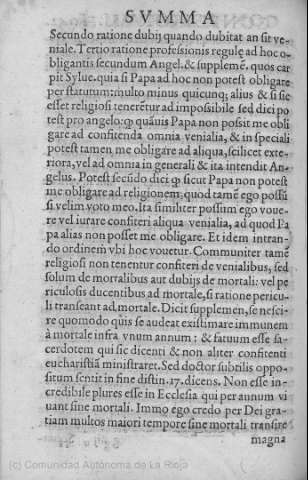 SVMMA
Secundo ratione dubij quando dubitat an sit ve-
niale. Tertio ratione professionis regulę ad hoc o-
bligantis secundum Angel. & supplemẽ. quos car
pit Sylue. quia si Papa ad hoc non potest obligare
per statutum: multo minus quicunq; alius & si sic
esset religiosi tenerẽtur ad impossibile sed dici po
test pro angelo: ꝙ quãuis Papa non possit me obli
gare ad confitenda omnia venialia, & in speciali
potest tamen me obligare ad aliqua, scilicet exte-
riora, vel ad omnia in generali & ita intendit An-
gelus. Potest secũdo dici ꝙ sicut Papa non potest
me obligare ad religionem, quòd tamẽ ego possũ
si velim voto meo. Ita similiter possum ego voue-
re vel iurare confiteri aliqua venialia, ad quod Pa
pa alias non posset me obligare. Et idem intran-
do ordinem vbi hoc vouetur. Communiter tamẽ
religiosi non tenentur confiteri de venialibus, sed
solum de mortalibus aut dubijs de mortali: vel pe
riculosis ducentibus ad mortale, si ratione pericu-
li transeant ad mortale. Dicit supplemen, se nesci-
re quomodo quis se audeat existimare immunem
à mortale infra vnum annum: & fatuum esse sa-
cerdotem qui sic dicenti & non aliter confitenti
eucharistiã ministraret. Sed doctor subtilis oppo-
situm sentit in fine distin. 17. dicens. Non esse in-
credibile plures esse in Ecclesia qui per annum vi
uant sine mortali. Immo ego credo per Dei gra-
tiam multos maiori tempore sine mortali transire
magna
(c) Comunidad Autónoma de La Rioja